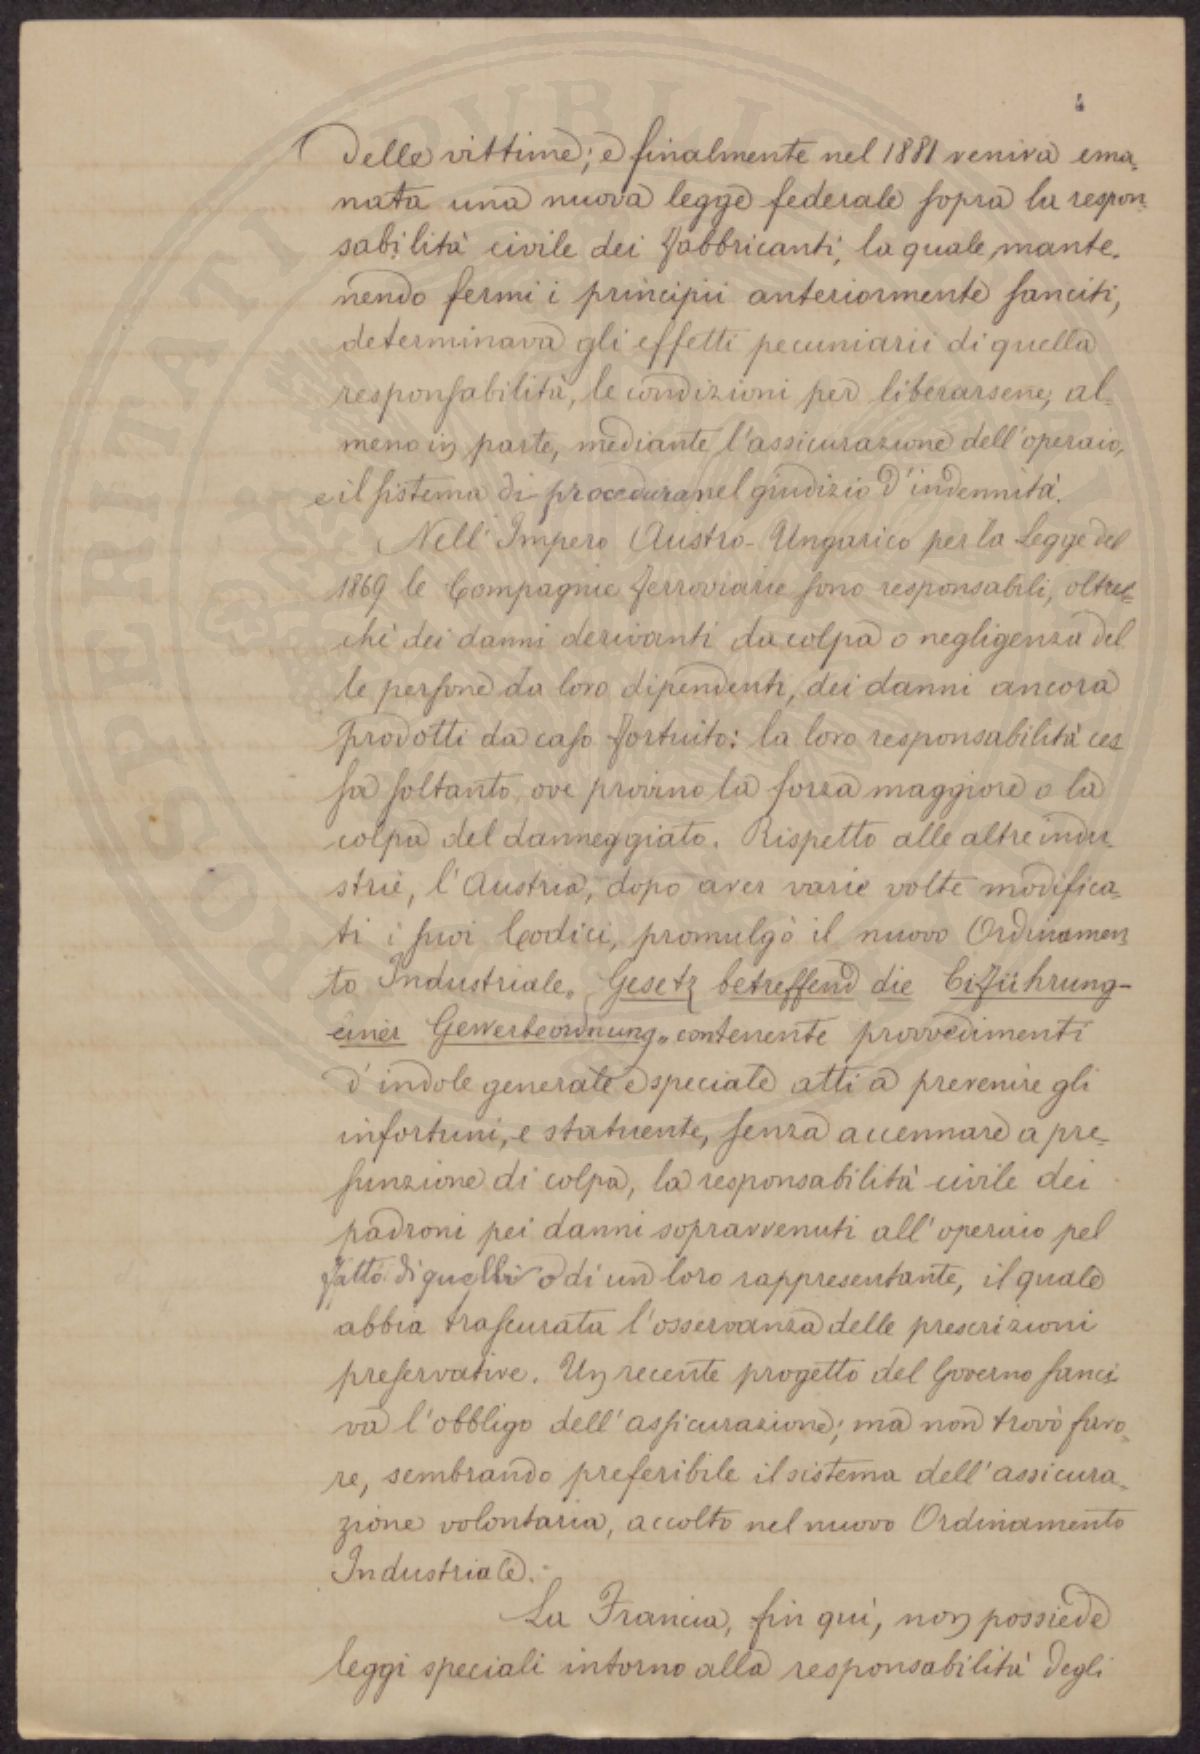 delle vittime; e finalmente nel 1881 veniva ema-
nata una nuova legge federale sopra la respon-
sabilità civile dei fabbricanti, la quale, mante-
nendo fermi i principii anteriormente sanciti,
determinava gli effetti pecuniarii di quella
responsabilità, le condizioni per liberarsene, al-
meno in parte, mediante l'assicurazione dell'operaio,
e il sistema di procedura nel giudizio d'indennità.
Nell'Impero Austro-Ungarico per la Legge del
1869 le Compagnie ferroviarie sono responsabili, oltrec-
chè dei danni derivanti da colpa o negligenza del
le persone da loro dipendenti, dei danni ancora
prodotti da caso fortuito: la loro responsabilità ces
sa soltanto, ove provino la forza maggiore o la
colpa del danneggiato. Rispetto alle altre indu-
strie, l'Austria, dopo aver varie volte modifica-
ti i suoi Codici, promulgò il nuovo Ordinamen
to Industriale „Gesetz betreffend die Eiführung-
einer Gewerbeordnung„ contenente provvedimenti
d'indole generale e speciale atti a prevenire gli
infortuni, e statuente, senza accennare a pre-
sunzione di colpa, la responsabilità civile dei
padroni pei danni sopravvenuti all'operaio pel
fatto di quelli o di un loro rappresentante, il quale
abbia trascurata l'osservanza delle prescrizioni
preservative. Un recente progetto del Governo sanci-
va l'obbligo dell'assicurazione; ma non trovò favo-
re, sembrando preferibile il sistema dell'assicura-
zione volontaria, accolto nel nuovo Ordinamento
Industriale.
La Francia, fin qui, non possiede
leggi speciali intorno alla responsabilità degli
PROSPERITATI PVBLICAE